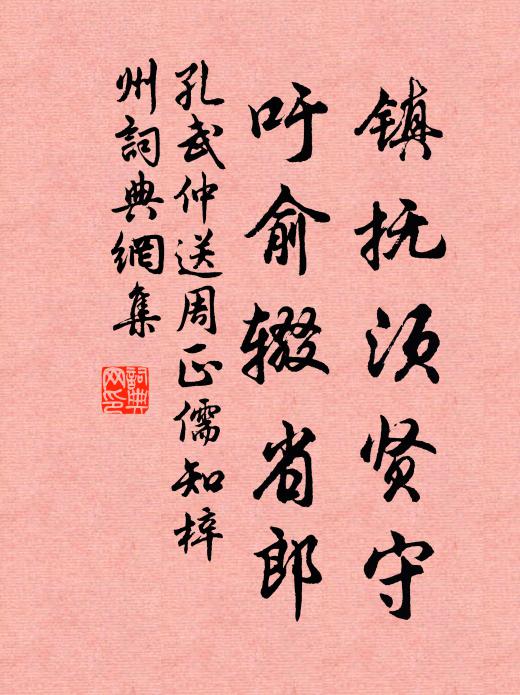 镇抚须贤守
吁俞辍省郎
孔武仲送周正儒知梓
州詞典網集
詞典网印